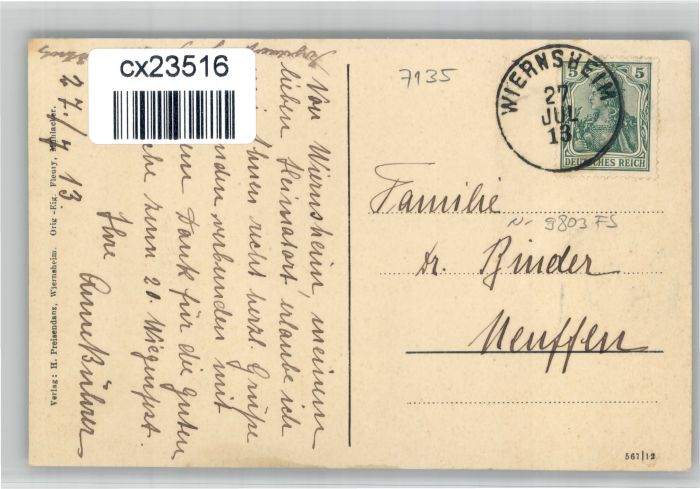 cx23516
7135
WIERNSHEIM
27
JUL
13
5 5
DEUTSCHES REICH
Familie
Nr 9803 FS
Dr. Binder
Neuffen
567|12
Von Wiernsheim, meinem
lieben Heimatort erlaube ich
Ihnen recht herzl. Grüße
verbunden mit
Dank für die guten
zum 20. Wiegenfest.
Ihre Anne Bührer
27./7 13
Verlag: H. Preisendanz, Wiernsheim. Orig.-Eig. Fleury, Mühlacker.